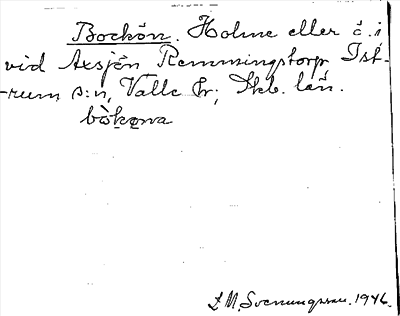 Bockön. Holme eller ö. i
vid Axsjön Remmingstorp Ist-
-rum s:n, Valle hr; Skb. län.
bòkǫna
L. M. Svenungsson. 1946.